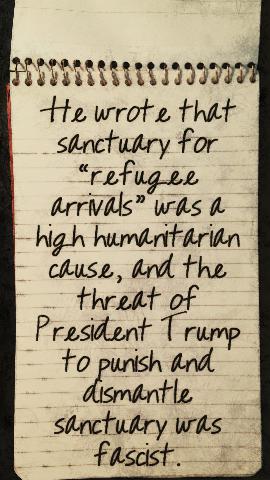 He wrote that
sanctuary for
“refugee
arrivals” was a
high humanitarian
cause, and the
threat of
President Trump
to punish and
dismantle
sanctuary was
fascist.